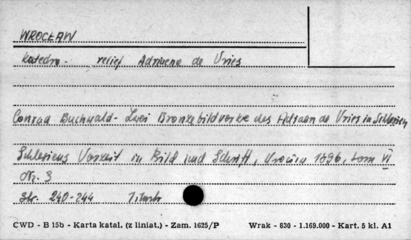 WROCŁAW
katedra - relief Adriaena de Vries
Conrad Buchwald - Zwei Bronzebildwerke des Adriaen de Vries in Schlesien
Schlesiens Vorzeit in Bild und Schrift, 1896, tom VI
Nr. 3
Str. 240-244
CWD - B 15b - Karta katal. (z liniat.) - Zam. 1625/P Wrak - 830 - 1.169.000 - Kart. 5 kl. A1